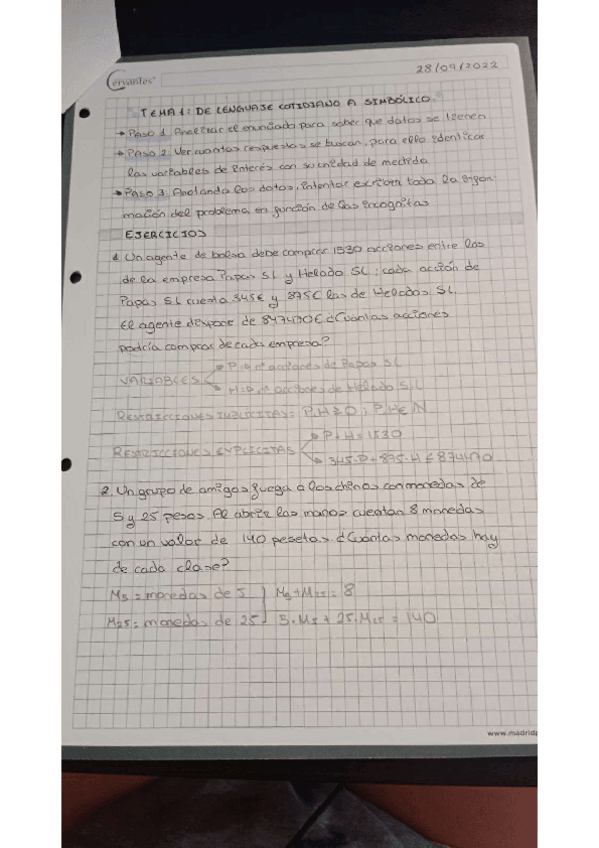 Cervantes
28/09/2022
TEMA 1: DE LENGUAJE COTIDIANO A SIMBÓLICO.
→ PASO 1. Analizar el enunciado para saber que datos se tienen
→ PASO 2. Ver cuantas respuestas se buscan, para ello identificar
las variables de interés con su unidad de medida
→ PASO 3. Anotando los datos, intentar escribir toda la infor-
mación del problema en función de las incognitas
EJERCICIOS
1 Un agente de bolsa debe comprar 1530 acciones entre las
de la empresa Papas SL y Helado SL; cada acción de
Papas SL cuesta 345€ y 875€ las de Helados SL.
El agente dispone de 874470€ ¿Cuántas acciones
podría comprar de cada empresa?
VARIABLES P = nº acciones de Papas SL
H = nº acciones de Helado SL
RESTRICCIONES IMPLÍCITAS: P, H ≥ 0; P, H ∈ N
RESTRICCIONES EXPLICITAS P + H = 1530
345·P + 875·H ≤ 874470
2. Un grupo de amigos juega a los chinos con monedas de
5 y 25 pesos. Al abrir las manos cuentan 8 monedas
con un valor de 140 pesetas ¿Cuántas monedas hay
de cada clase?
M5 = monedas de 5 M5 + M25 = 8
M25 = monedas de 25 5·M5 + 25·M25 = 140
www.madridp